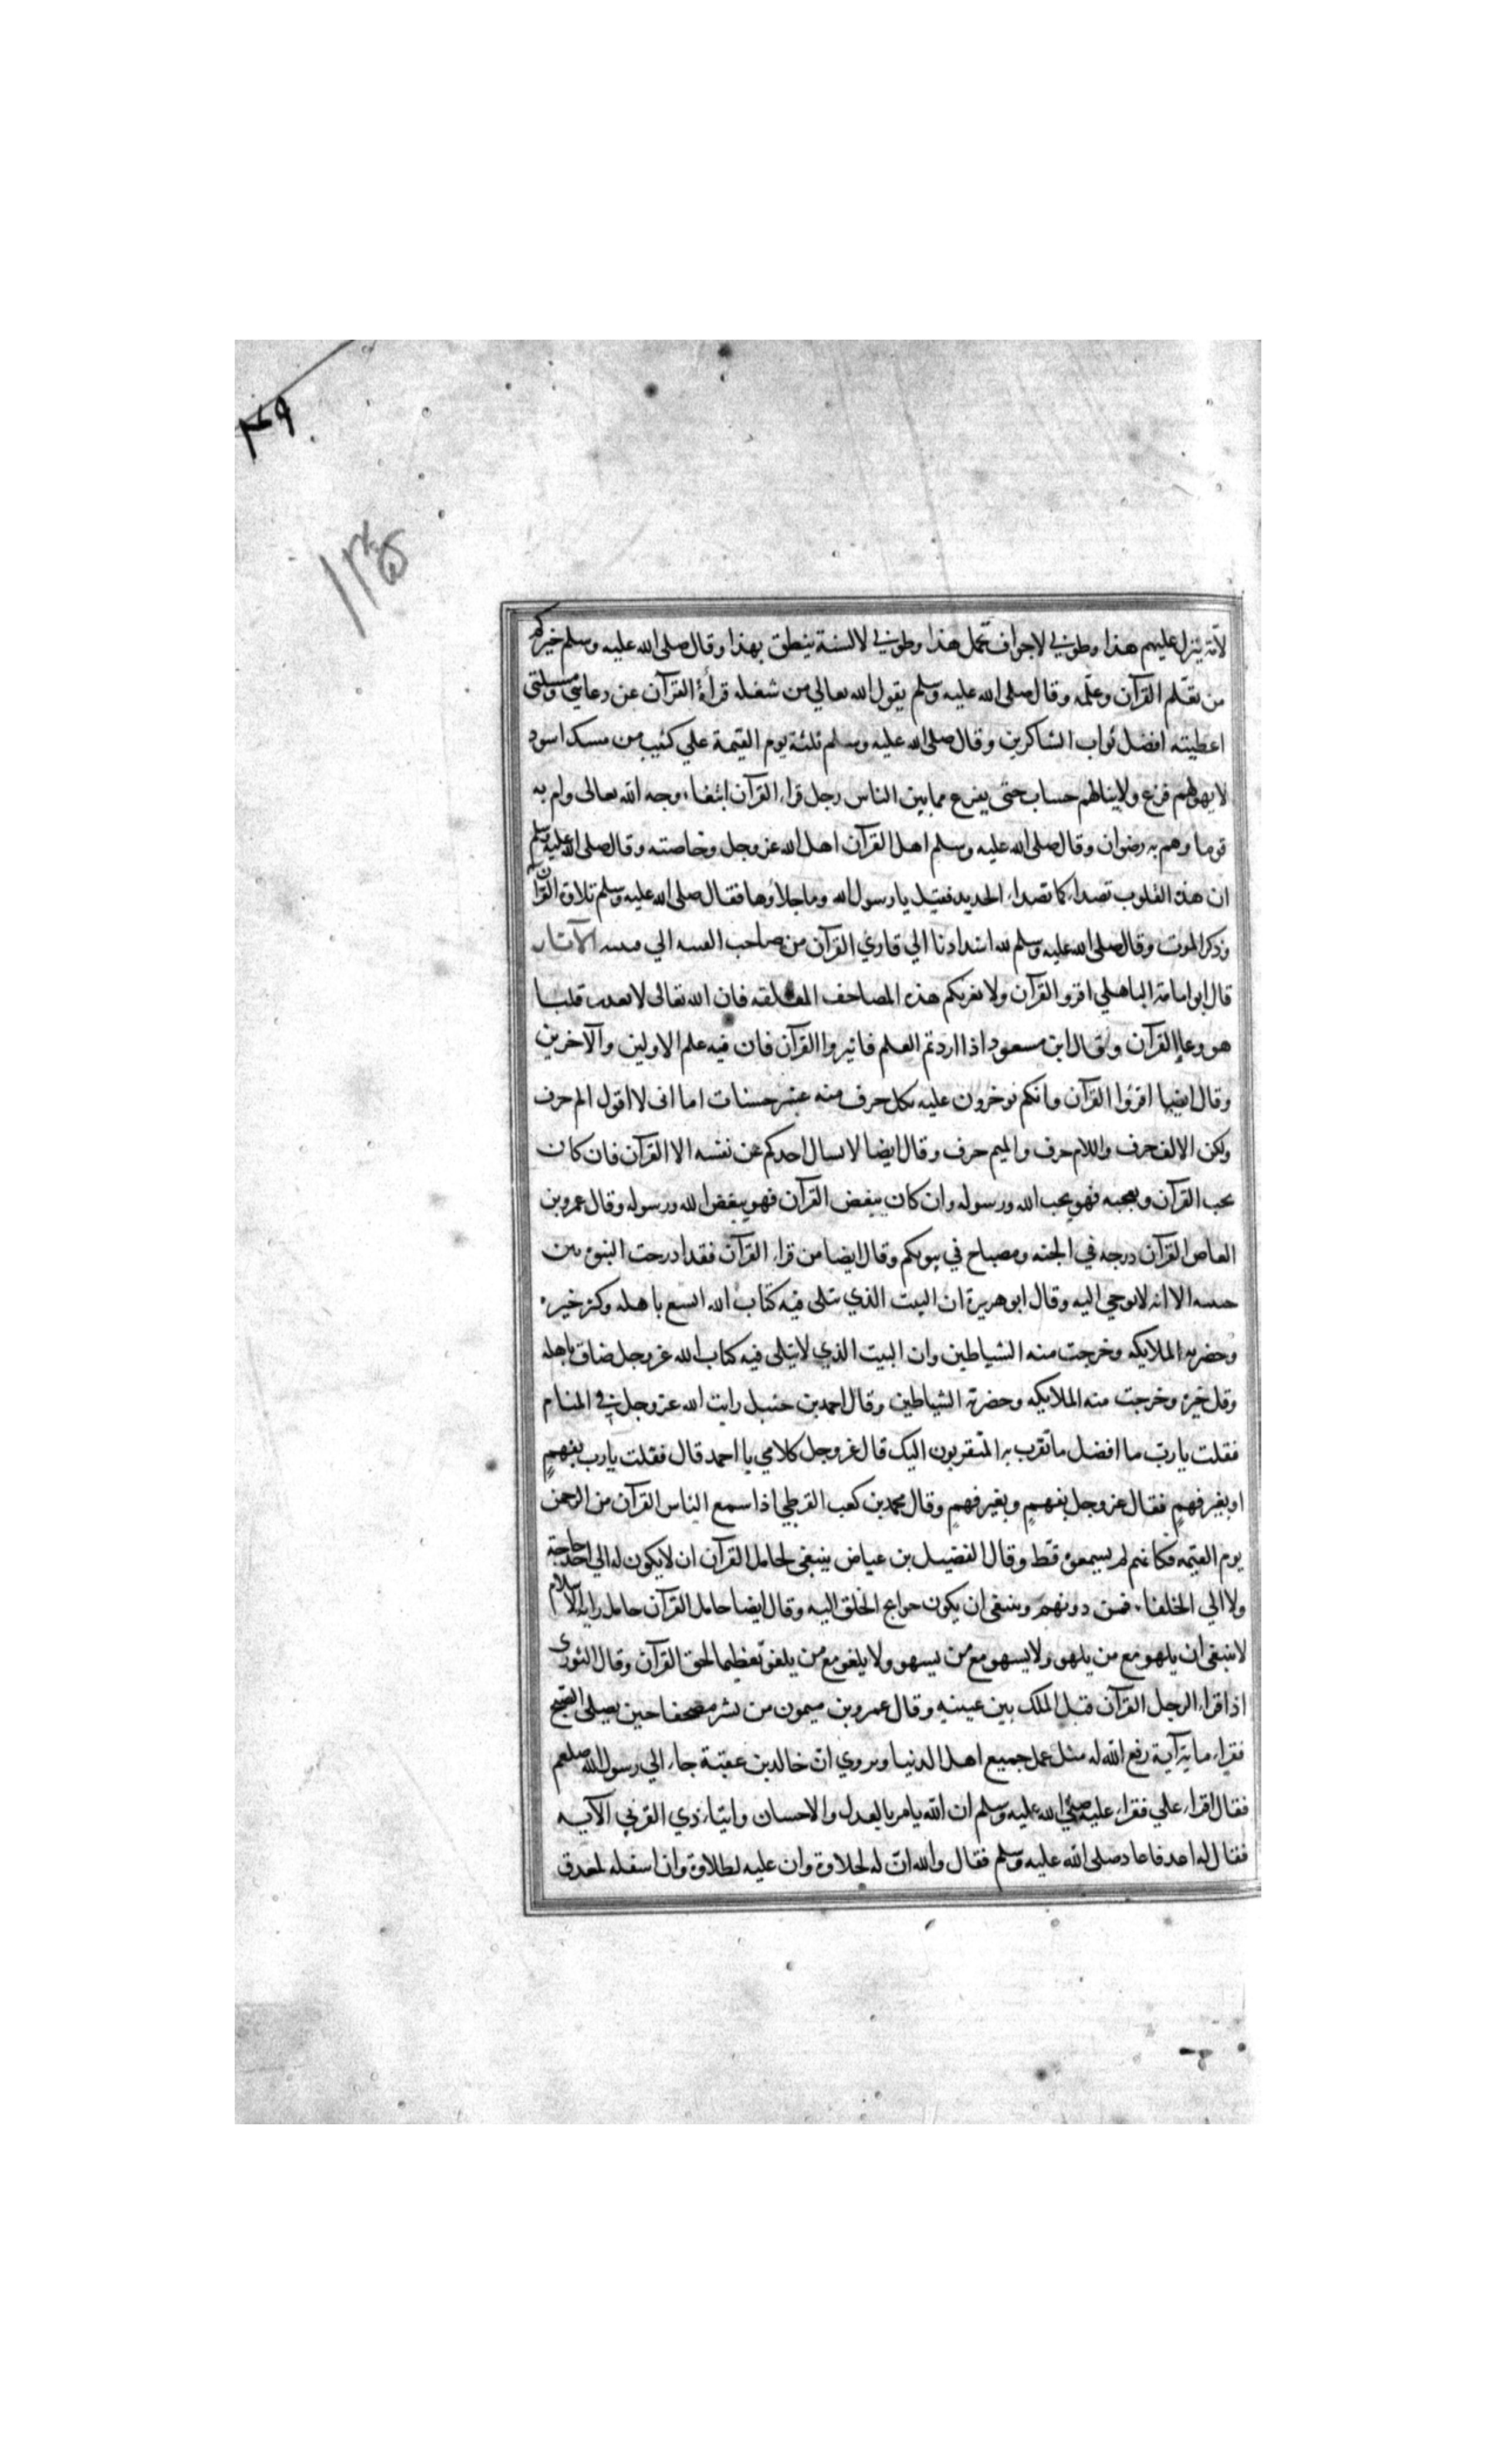 ۴۶۹
لامّة ينزل عليهم هذا وطوبي لاجواف تحمل هذا وطوبي لالسنة ينطق بهذا وقال صلى الله عليه وسلم خيركم
من تعلّم القرآن وعلّمه وقال صلى الله عليه وسلم يقول الله تعالي من شغله قرأة القرآن عن دعايي ومسئلتي
اعطيته افضل ثواب الشاكرين وقال صلى الله عليه وسلم ثلثة يوم القيمة علي كثيب من مسك اسود
لا يهولهم فزع ولا ينالهم حساب حتى يفرغ مما بين الناس رجل قراء القرآن ابتغاء وجه الله تعالى وام به
قوما وهم به رضوان وقال صلى الله عليه وسلم اهل القرآن اهل الله عز وجل وخاصته وقال صلى الله عليه وسلم
ان هذه القلوب تصداء كما تصداء الحديد فقيل يا رسول الله وما جلاؤها فقال صلى الله عليه وسلم تلاوة القرآن
وذكر الموت وقال صلى الله عليه وسلم لله اشد اذنا الي قاري القرآن من صاحب القينه الي قينته الآثار
قال ابو امامة الباهلي اقرو القرآن ولا يغرنكم هذه المصاحف المعلقه فان الله تعالى لا يعذب قلبا
هو وعاء القرآن وقال ابن مسعود اذا اردتم العلم فاثيروا القرآن فان فيه علم الاولين والآخرين
وقال ايضا اقرؤا القرآن فانكم توجرون عليه بكل حرف منه عشر حسنات اما انى لا اقول الم حرف
ولكن الالف حرف واللام حرف والميم حرف وقال ايضا لا يسال احدكم عن نفسه الا القرآن فان كان
يحب القرآن ويعجبه فهو يحب الله ورسوله وان كان يبغض القرآن فهو يبغض الله ورسوله وقال عمرو بن
العاص القرآن درجه في الجنه ومصباح في بيوتكم وقال ايضا من قراء القرآن فقد ادرجت النبوة بين
جنبيه الا انه لا يوحي اليه وقال ابو هريرة ان البيت الذي يتلى فيه كتاب الله اتسع باهله وكثر خيره
وحضرته الملايكه وخرجت منه الشياطين وان البيت الذي لا يتلى فيه كتاب الله عز وجل ضاق باهله
وقل خيره وخرجت منه الملايكه وحضرته الشياطين وقال احمد بن حنبل رايت الله عز وجل في المنام
فقلت يا ربّ ما افضل ما تقرب به المتقربون اليك قال عز وجل كلامي يا احمد قال فقلت يا رب بفهمٍ
او بغير فهمٍ فقال عز وجل بفهمٍ وبغير فهمٍ وقال محمد بن كعب القرظي اذا سمع الناس القرآن من الرحمن
يوم القيمه فكانهم لم يسمعوه قط وقال الفضيل بن عياض ينبغى لحامل القرآن ان لا يكون له الي احد حاجة
ولا الي الخلفاء فمن دونهم وينبغى ان يكون حوايج الخلق اليه وقال ايضا حامل القرآن حامل راية الاسلام
لا ينبغى ان يلهو مع من يلهو ولا يسهو مع من يسهو ولا يلغو مع من يلغو تعظيما لحق القرآن وقال الثوري
اذا قراء الرجل القرآن قبل الملك بين عينيه وقال عمرو بن ميمون من نشر مصحفا حين يصلى الصبح
فقراء ماية آية رفع الله له مثل عمل جميع اهل الدنيا ويروي ان خالد بن عقبة جاء الي رسول الله صلعم
فقال اقراء علي فقراء عليه صلى الله عليه وسلم ان الله يامر بالعدل والاحسان وايتاء ذي القربي الآيه
فقال له اعد فاعاد صلى الله عليه وسلم فقال والله انّ له لحلاوة وان عليه لطلاوة وان اسفله لمغدق